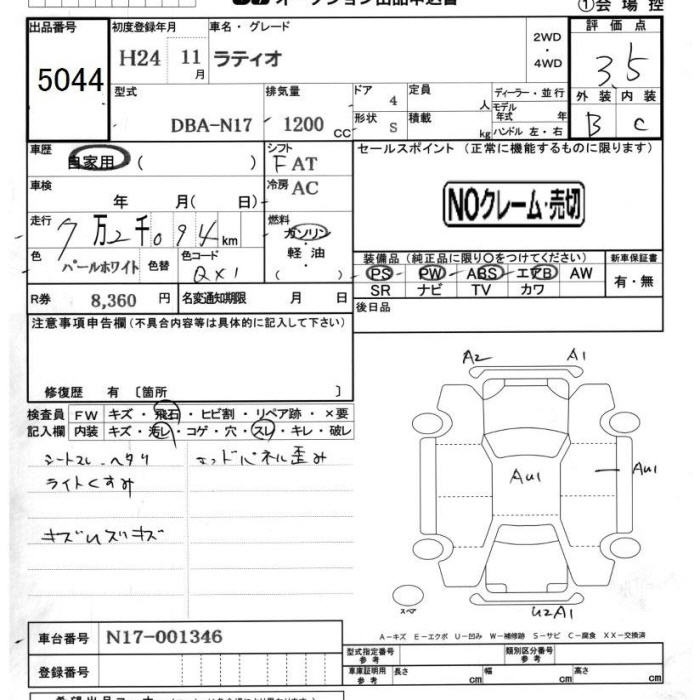 ①会場控
出品番号
5044
初度登録年月
H24 11月
車名・グレード
ラティオ
2WD
・
4WD
評価点
3.5
外装 内装
B C
型式
DBA-N17
排気量
1200 cc
ドア 4
形状 S
定員 人
積載 kg
ディーラー・並行
モデル年式 年
ハンドル 左・右
車歴
自家用 ( )
シフト
F AT
車検
年 月( 日)
冷房
AC
走行
7万2千094km
燃料
ガソリン
・
軽油
( )
色
パールホワイト
色替
色コード
QX1
R券 8,360 円
名変通知期限 月 日
セールスポイント(正常に機能するものに限ります)
NOクレーム・売切
装備品(純正品に限り○をつけてください)
PS PW ABS エアB AW
SR ナビ TV カワ
新車保証書
有・無
後日品
注意事項申告欄(不具合内容等は具体的に記入して下さい)
修復歴 有〔箇所 〕
検査員記入欄
FW キズ・飛石・ヒビ割・リペア跡・×要
内装 キズ・汚レ・コゲ・穴・スレ・キレ・破レ
シートスレ、ヘタリ
ライトくすみ
キズUズリキズ
エンドパネル歪み
A2
A1
AU1
AU1
スペア
U2A1
A-キズ E-エクボ U-凹み W-補修跡 S-サビ C-腐食 XX-交換済
車台番号 N17-001346
登録番号
型式指定番号
参考
類別区分番号
参考
車庫証明用
参考
長さ cm
幅 cm
高さ cm